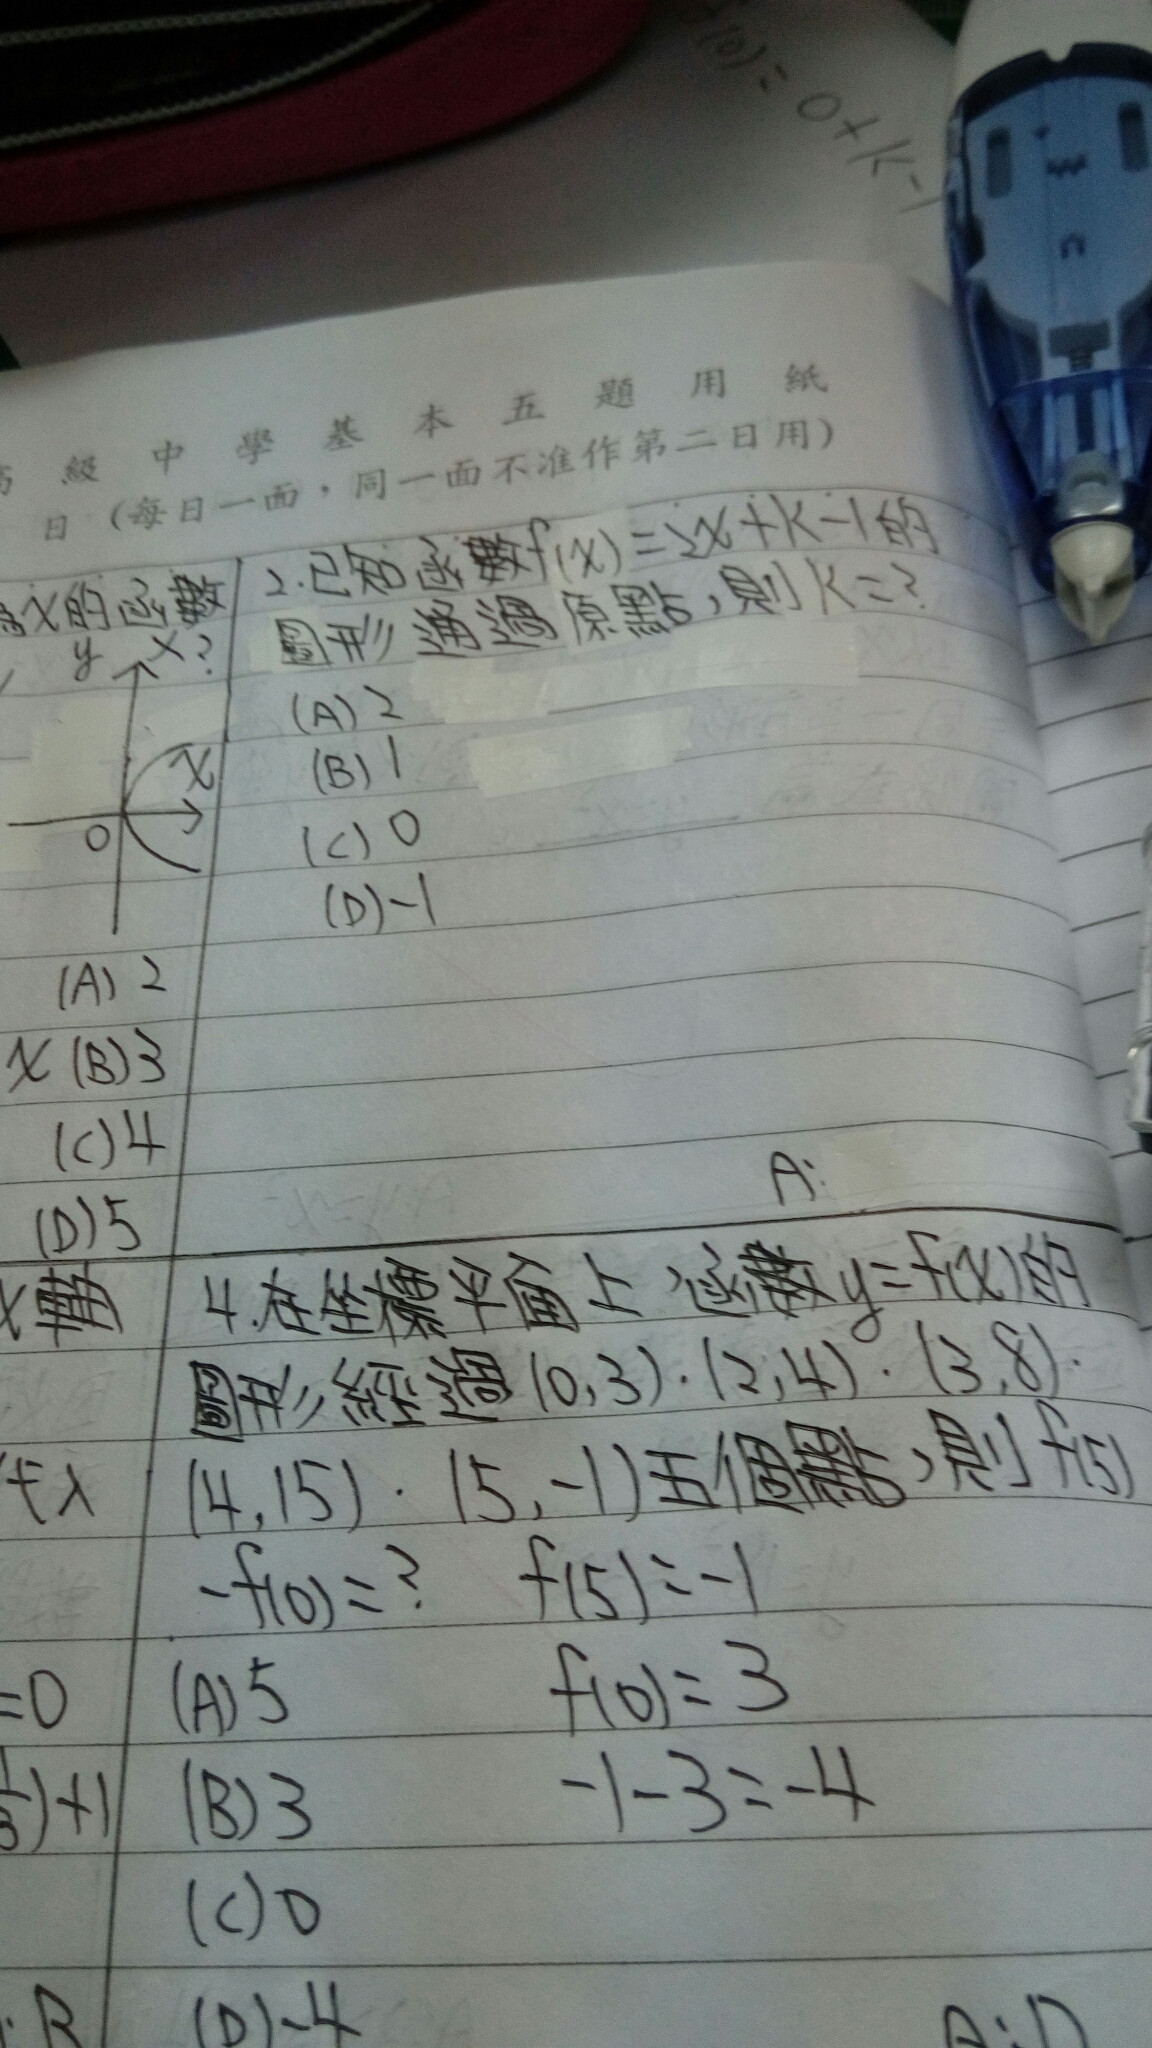 f(0)=0+k-1
高級中學基本五題用紙
日（每日一面，同一面不准作第二日用）
為x的函數
x?
y
x
0
(A) 2
x (B) 3
(C) 4
(D) 5
2.已知函數f(x)=2x+k-1的
圖形通過原點,則k=?
(A) 2
(B) 1
(C) 0
(D) -1
A:
x軸
代入
=0
)+1
: B
4.在坐標平面上,函數y=f(x)的
圖形經過(0,3)·(2,4)·(3,8)·
(4,15)·(5,-1)五個點,則f(5)
-f(0)=? f(5)=-1
(A) 5 f(0)=3
(B) 3 -1-3=-4
(C) 0
(D) -4
A:D